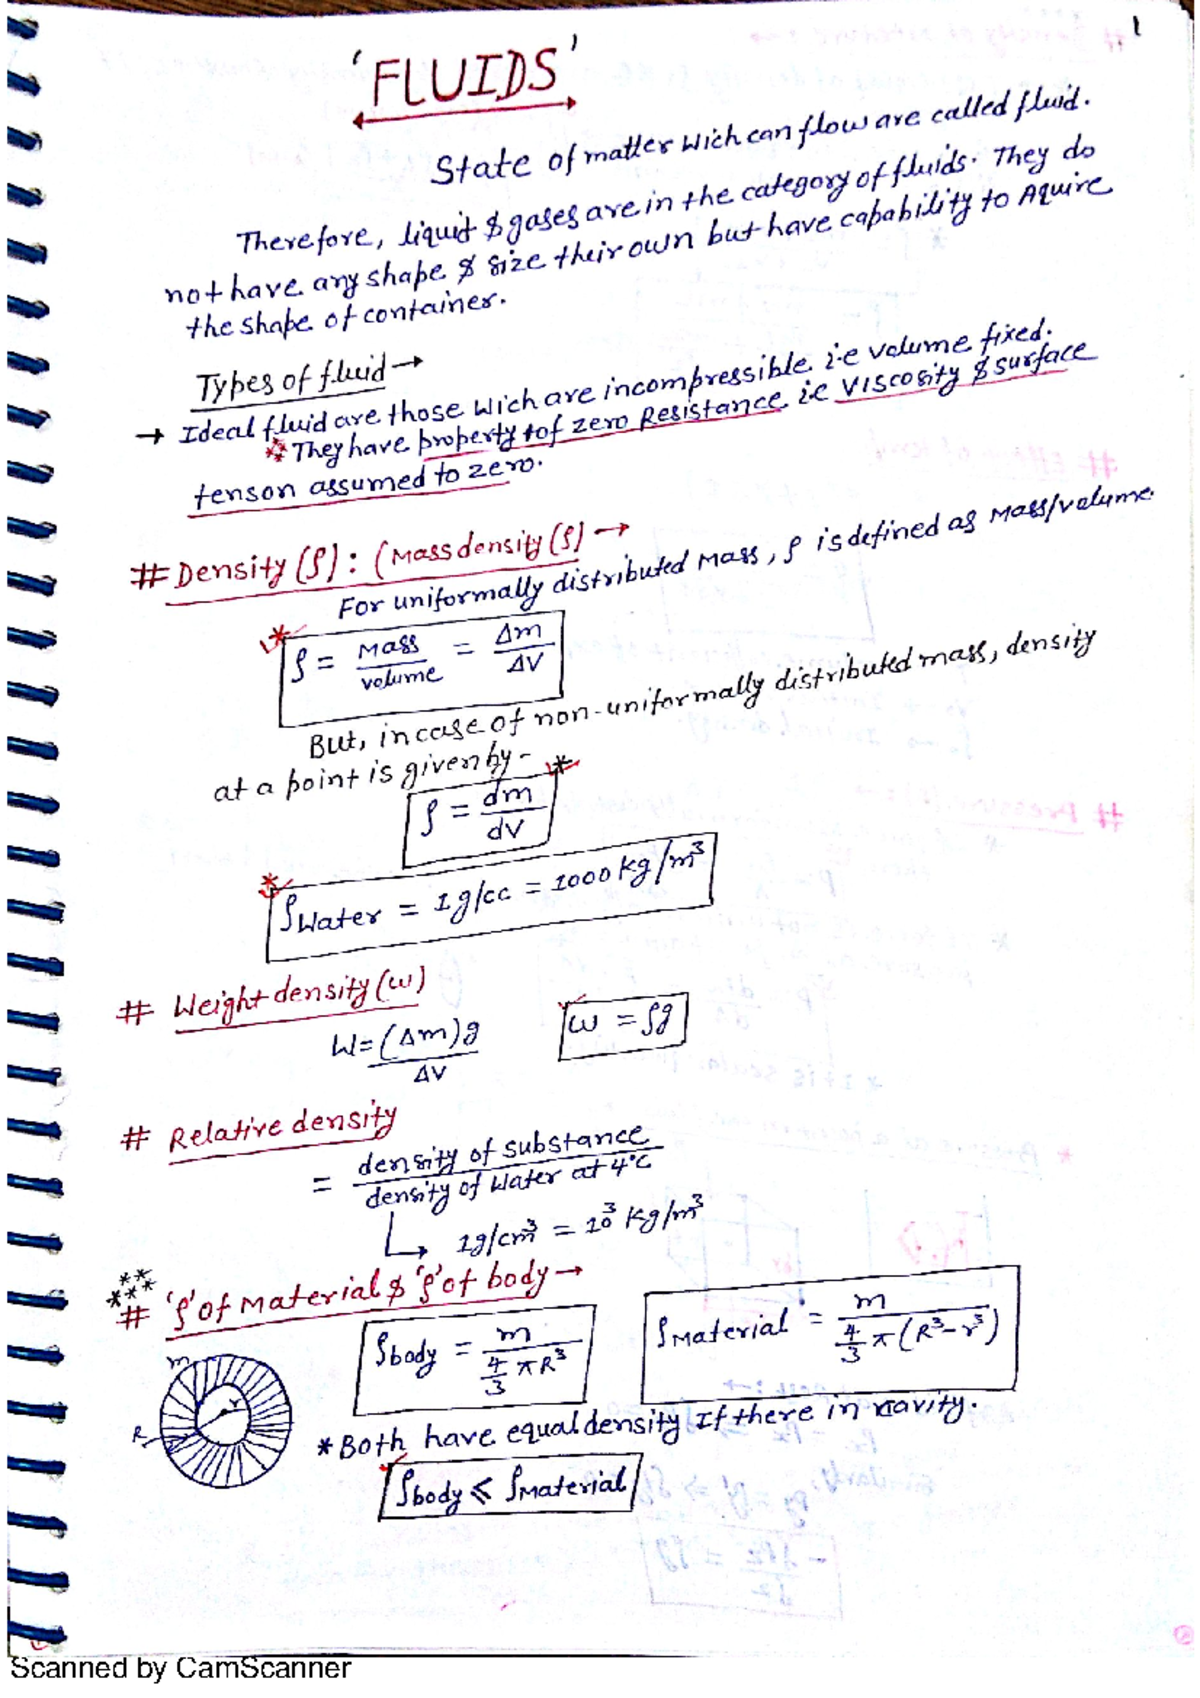 1
'FLUIDS'
State of matter wich can flow are called fluid.
Therefore, liquid & gases are in the category of fluids. They do
not have any shape & size their own but have capability to Aquire
the shape of container.
Types of fluid →
→ Ideal fluid are those wich are incompressible i.e volume fixed.
* They have property tof zero Resistance i.e Viscosity & surface
tenson assumed to zero.
# Density (ρ) : (Mass density (ρ) →
For uniformally distributed Mass, ρ is defined as Mass/volume.
* ρ = Mass/volume = Δm/ΔV
But, in case of non-uniformally distributed mass, density
at a point is given by -
* ρ = dm/dV
* ρWater = 1g/cc = 1000 kg/m³
# Weight density (w)
W = (Δm)g/ΔV   w = ρg
# Relative density
= density of substance/density of water at 4°C
↳ 1g/cm³ = 10³ kg/m³
*****
# 'ρ' of Material & 'ρ' of body →
ρbody = m/(4/3 πR³)   ρMaterial = m/(4/3 π(R³-r³))
m
r
R
* Both have equal density If there in cavity.
ρbody ≤ ρMaterial
Scanned by CamScanner